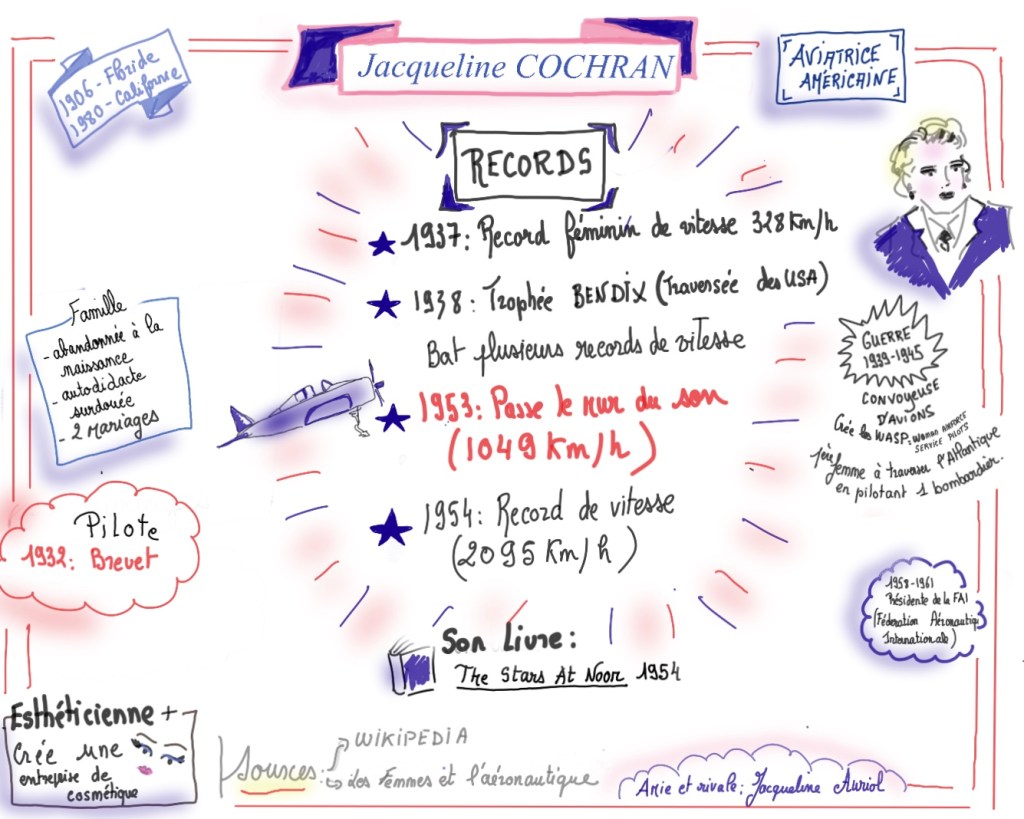 Jacqueline COCHRAN
1906 - Floride
1980 - Californie
AVIATRICE
AMÉRICAINE
RECORDS
1937: Record féminin de vitesse 328 Km/h
1938: Trophée BENDIX (Traversée des USA)
Bat plusieurs records de vitesse
1953: Passe le mur du son
(1049 Km/h)
1954: Record de vitesse
(2095 Km/h)
Son Livre:
The Stars At Noon 1954
Famille
- abandonnée à la
naissance
- autodidacte
surdouée
- 2 mariages
Pilote
1932: Brevet
Esthéticienne +
Crée une
entreprise de
cosmétique
GUERRE
1939-1945
CONVOYEUSE
D'AVIONS
Crée les WASP: Woman AIRFORCE
SERVICE PILOTS
1ère femme à traverser l'Atlantique
en pilotant 1 bombardier.
1958-1961
Présidente de la FAI
(Fédération Aéronautiqu
Internationale)
Sources:
WIKIPEDIA
des femmes et l'aéronautique
Amie et rivale: Jacqueline Auriol